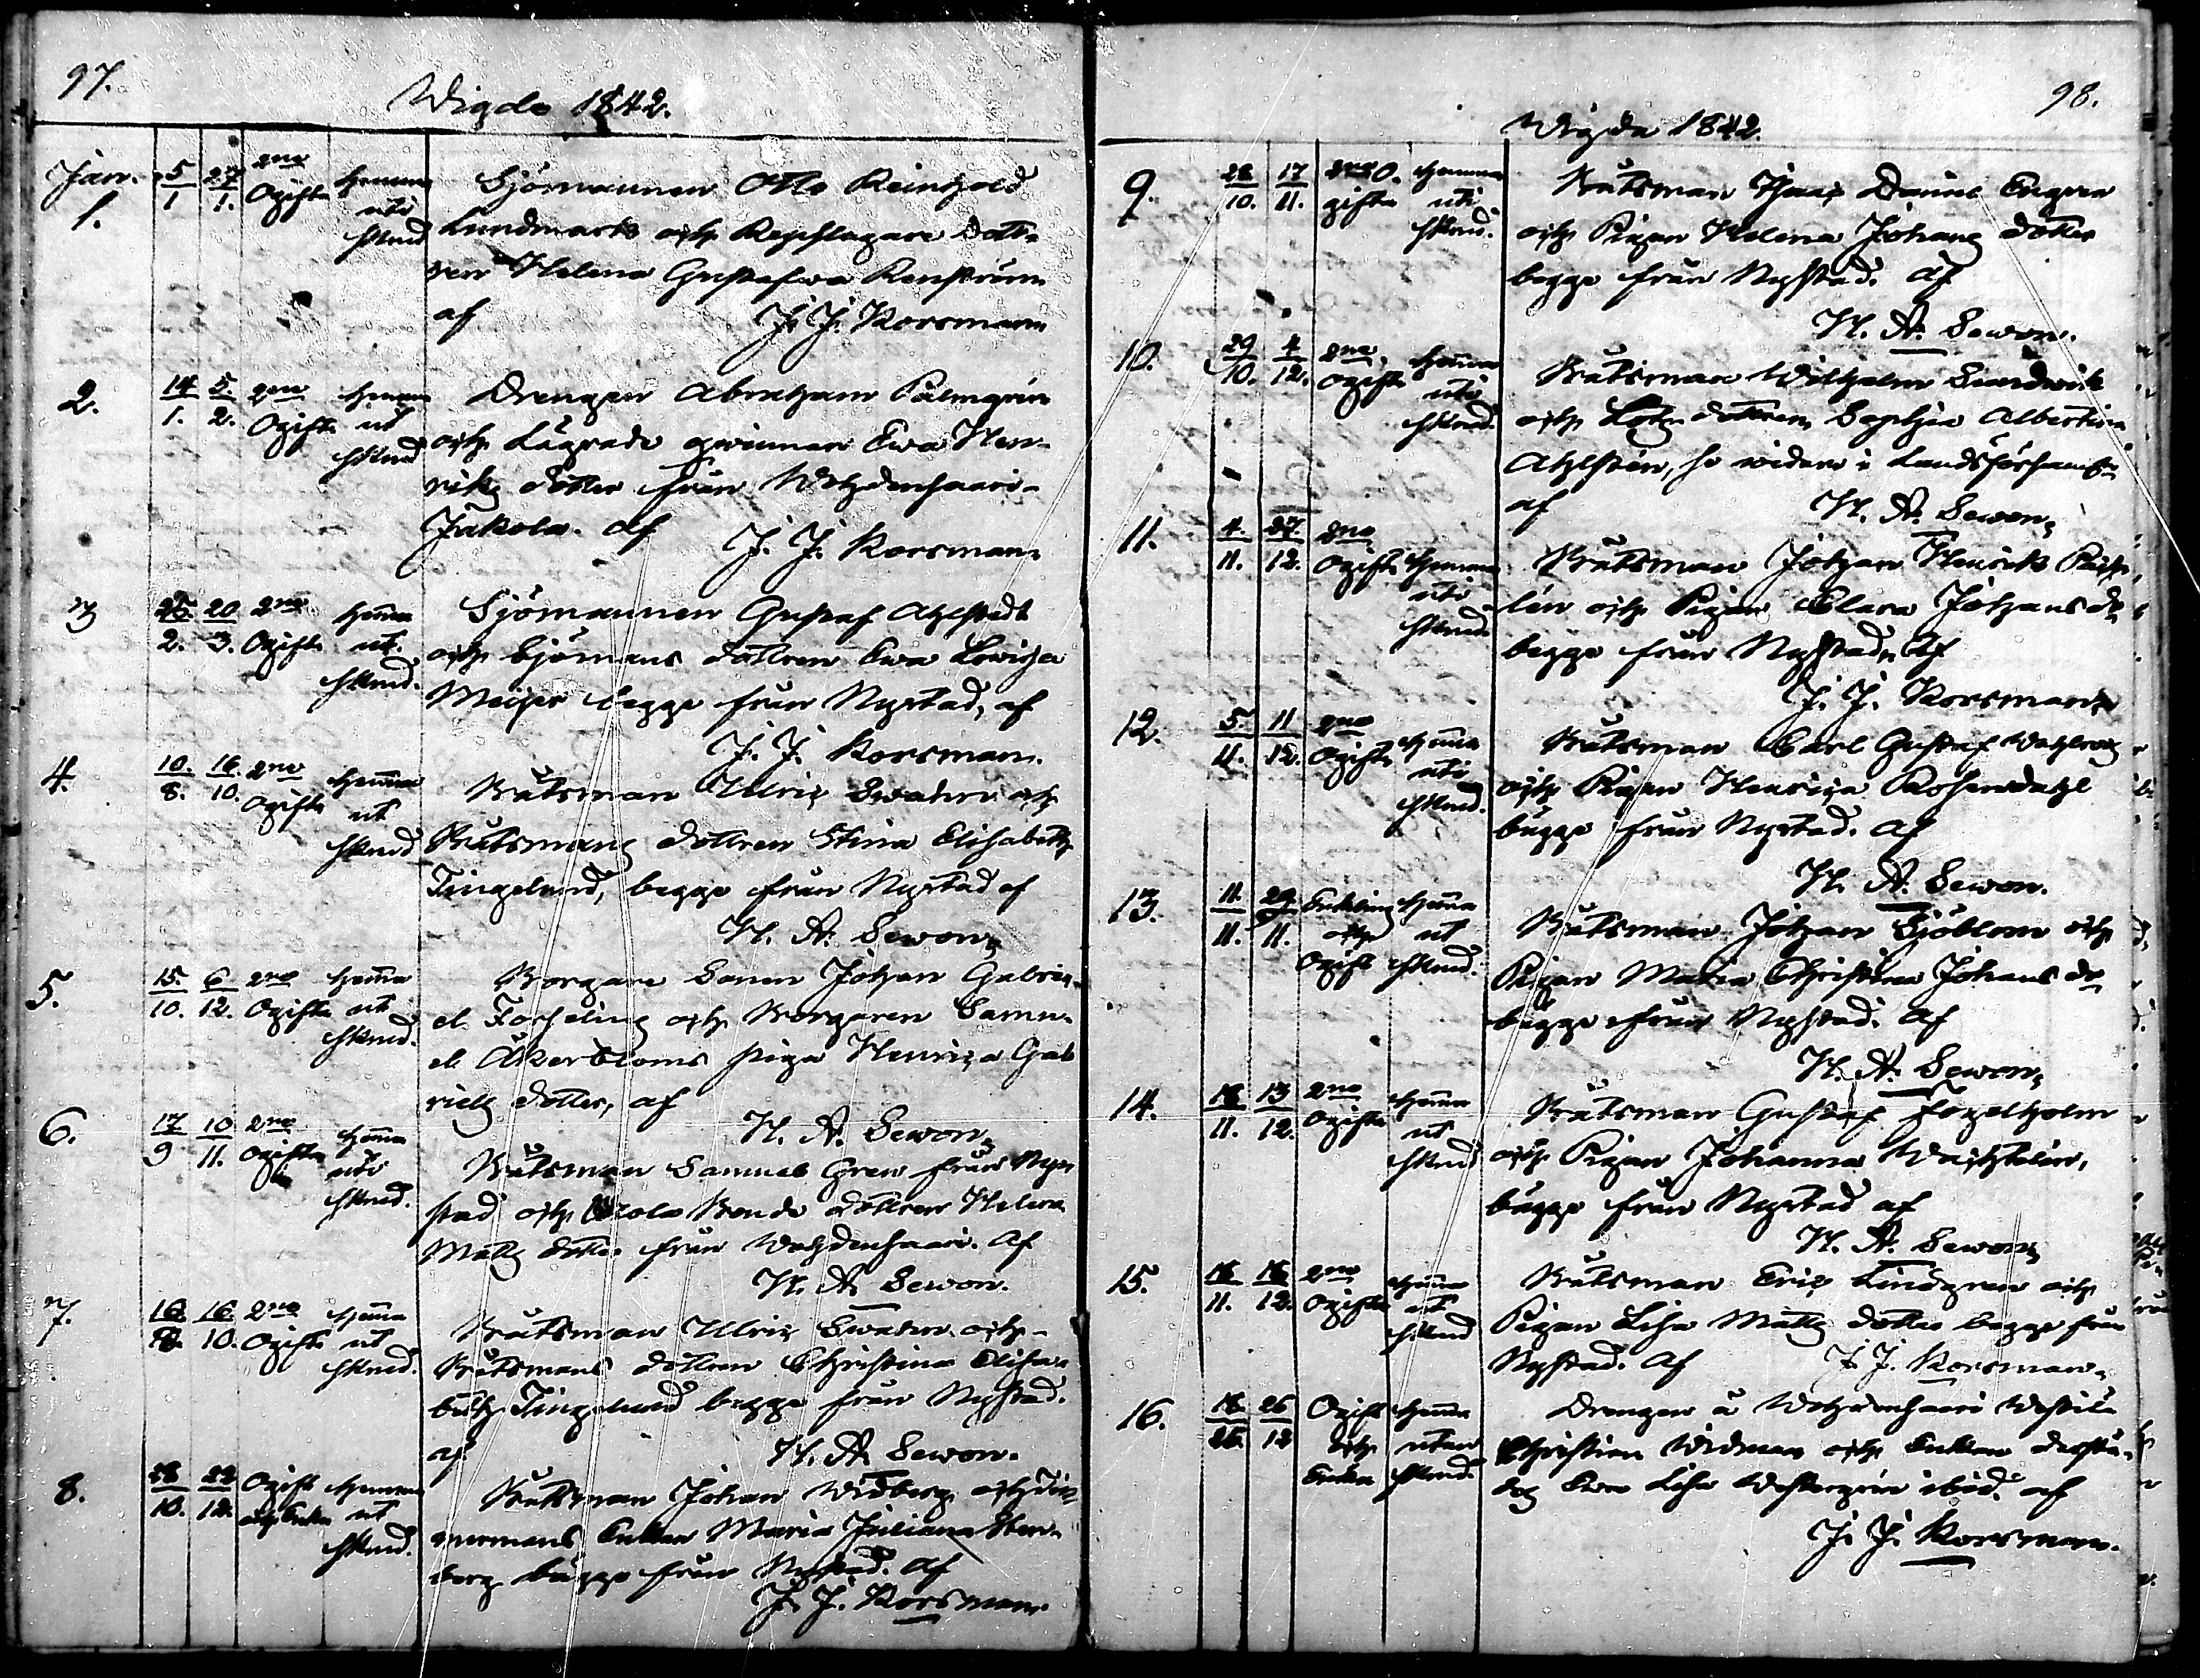 97.
Wigde 1842.
Jan. 1. 5/1 27/1. 2ne Ogifte Hemma uti stånd
Sjömannen Otto Reinhold
Lundmark och Repslagare dott-
ren Helena Gustafwa Renström
af J. J. Korsman
2. 14/1. 5/2. 2ne Ogifte Hemma ut stånd
Drengen Abraham Palmgrén
och Lägrade qwinnan Ewa Hen-
riks dotter från Wohdensaari-
Jakola. af J. J. Korsman
3 25/2. 20/3. 2ne Ogifte Hemma ut. stånd.
Sjömannen Gustaf Ahlstedt
och Sjömans dottren Ewa Lowisa
Meijer begge från Nystad, af
J. J. Korsman.
4. 10./8. 16./10. 2ne Ogifte Hemma ut stånd
Båtsman Ulric Swahn och
Båtsmans dottren Stina Elisabeth
Tingelund, begge från Nystad af
H. A. Sewon,
5. 15./10. 6/12. 2ne Ogifte Hemma ut stånd.
Borgare Sonen Johan Gabri-
el Forseling och Borgaren Samu-
el Åkerbloms piga Henrica Gab
riels dotter, af
H. A. Sewon,
6. 17/9 10/11. 2ne Ogifte Hemma uti stånd.
Båtsman Samuel Gren från Ny-
stad och Bonde dottren Helena
Matts dotter från Wohdensaari. Af
H. A. Sewon.
7. 16./10. 2ne Ogifte Hemma ut stånd.
Båtsman Ulric Swahn och-
Båtsmans dottren Christina Elisa-
beth Tingelund begge från Nystad.
af H. A. Sewon.
8. 22/12. Ogift och Enka Hemma ut stånd.
Båtsman Johan Widberg och Tim
mermans Enkan Maria Juliana Sten-
berg begge från Nystad. Af
J. J. Korsman.
98.
Wigda 1842.
9. 28/10. 17/11. 2ne O. gifte Hemma uti stånd.
Båtsman Isaac Daniel Engren
och Pigan Helena Johans dotter
begge från Nystad. af
H. A. Sewon.
10. 29/10. 4/12. 2ne. Ogifte Hemma uti stånd.
Båtsman Wilhelm Sundwik
och dottren Sophia Albertina
Ahlsten, se widare i Landsförsaml.
af H. A. Sewon,
11. 4./11. 27./12. 2ne Ogifte Hemma uti stånd
Båtsman Johan Henrik
lén och Pigan Clara Johans dr
begge från Nystad, Af
J. J. Korsman,
12. 5./11. 11/12. 2ne Ogifte Hemma uti stånd.
Båtsman Carl Gustaf
och Pigan Henrica Rosendahl
begge från Nystad. af
H. A. Sewon.
13. 11./11. 29./11. Enkling och Ogift Hemma ut stånd.
Båtsman Johan Sjöblom och
Pigan Maria Christina Johans dr
begge från Nystad. Af
H. A. Sewon,
14. 18/11. 13/12. 2ne Ogifte Hemma ut stånd
Båtsman Gustaf Fogelholm
och Pigan Johanna
begge från Nystad af
H. A. Sewon,
15. 18/11. 18/12. 2ne Ogifte Hemma ut stånd
Båtsman Eric Lindgren och
Pigan Lisa Matts dotter begge från
Nystad. Af J. J. Korsman.
16. 26/12 Ogift och Enka Hemma utan stånd.
Drengen å Wohdensaari
Christian Widman och Enkan
Ewa Lisa Westergrén ibid. af
J. J. Korsman.